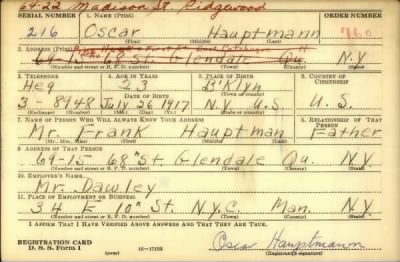 64-22 Madison St. Ridgewood
SERIAL NUMBER 1. NAME (Print) ORDER NUMBER
216 Oscar Hauptmann 760
(First) (Middle) (Last)
2. ADDRESS (Print)
69-15 68th St. Glendale Qu. N.Y.
(Number and street or R. F. D. number) (Town) (County) (State)
3. TELEPHONE 4. AGE IN YEARS 5. PLACE OF BIRTH 6. COUNTRY OF CITIZENSHIP
Heg 23 B'klyn
DATE OF BIRTH
3-8948 July 26 1917 N.Y. U.S. U.S.
(Exchange) (Number) (Mo.) (Day) (Yr.) (State or country)
7. NAME OF PERSON WHO WILL ALWAYS KNOW YOUR ADDRESS 8. RELATIONSHIP OF THAT PERSON
Mr. Frank Hauptman Father
(Mr., Mrs., Miss) (First) (Middle) (Last)
9. ADDRESS OF THAT PERSON
69-15 68th St. Glendale Qu. N.Y.
(Number and street or R. F. D. number) (Town) (County) (State)
10. EMPLOYER'S NAME
Mr. Dawley
11. PLACE OF EMPLOYMENT OR BUSINESS
34 E 10th St. N.Y.C. Man. N.Y.
(Number and street or R. F. D. number) (Town) (County) (State)
I AFFIRM THAT I HAVE VERIFIED ABOVE ANSWERS AND THAT THEY ARE TRUE.
REGISTRATION CARD
D. S. S. Form 1 (over) 16-17105 Oscar Hauptmann
(Registrant's signature)